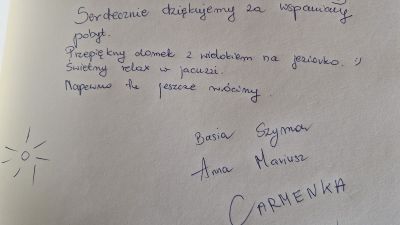 Serdecznie dziękujemy za wspaniały
pobyt.
Przepiękny domek z widokiem na jeziorko. :)
Świetny relax w jacuzzi.
Napewno tu jeszcze wrócimy.
Basia Szymon
Anna Mariusz
CARMENKA